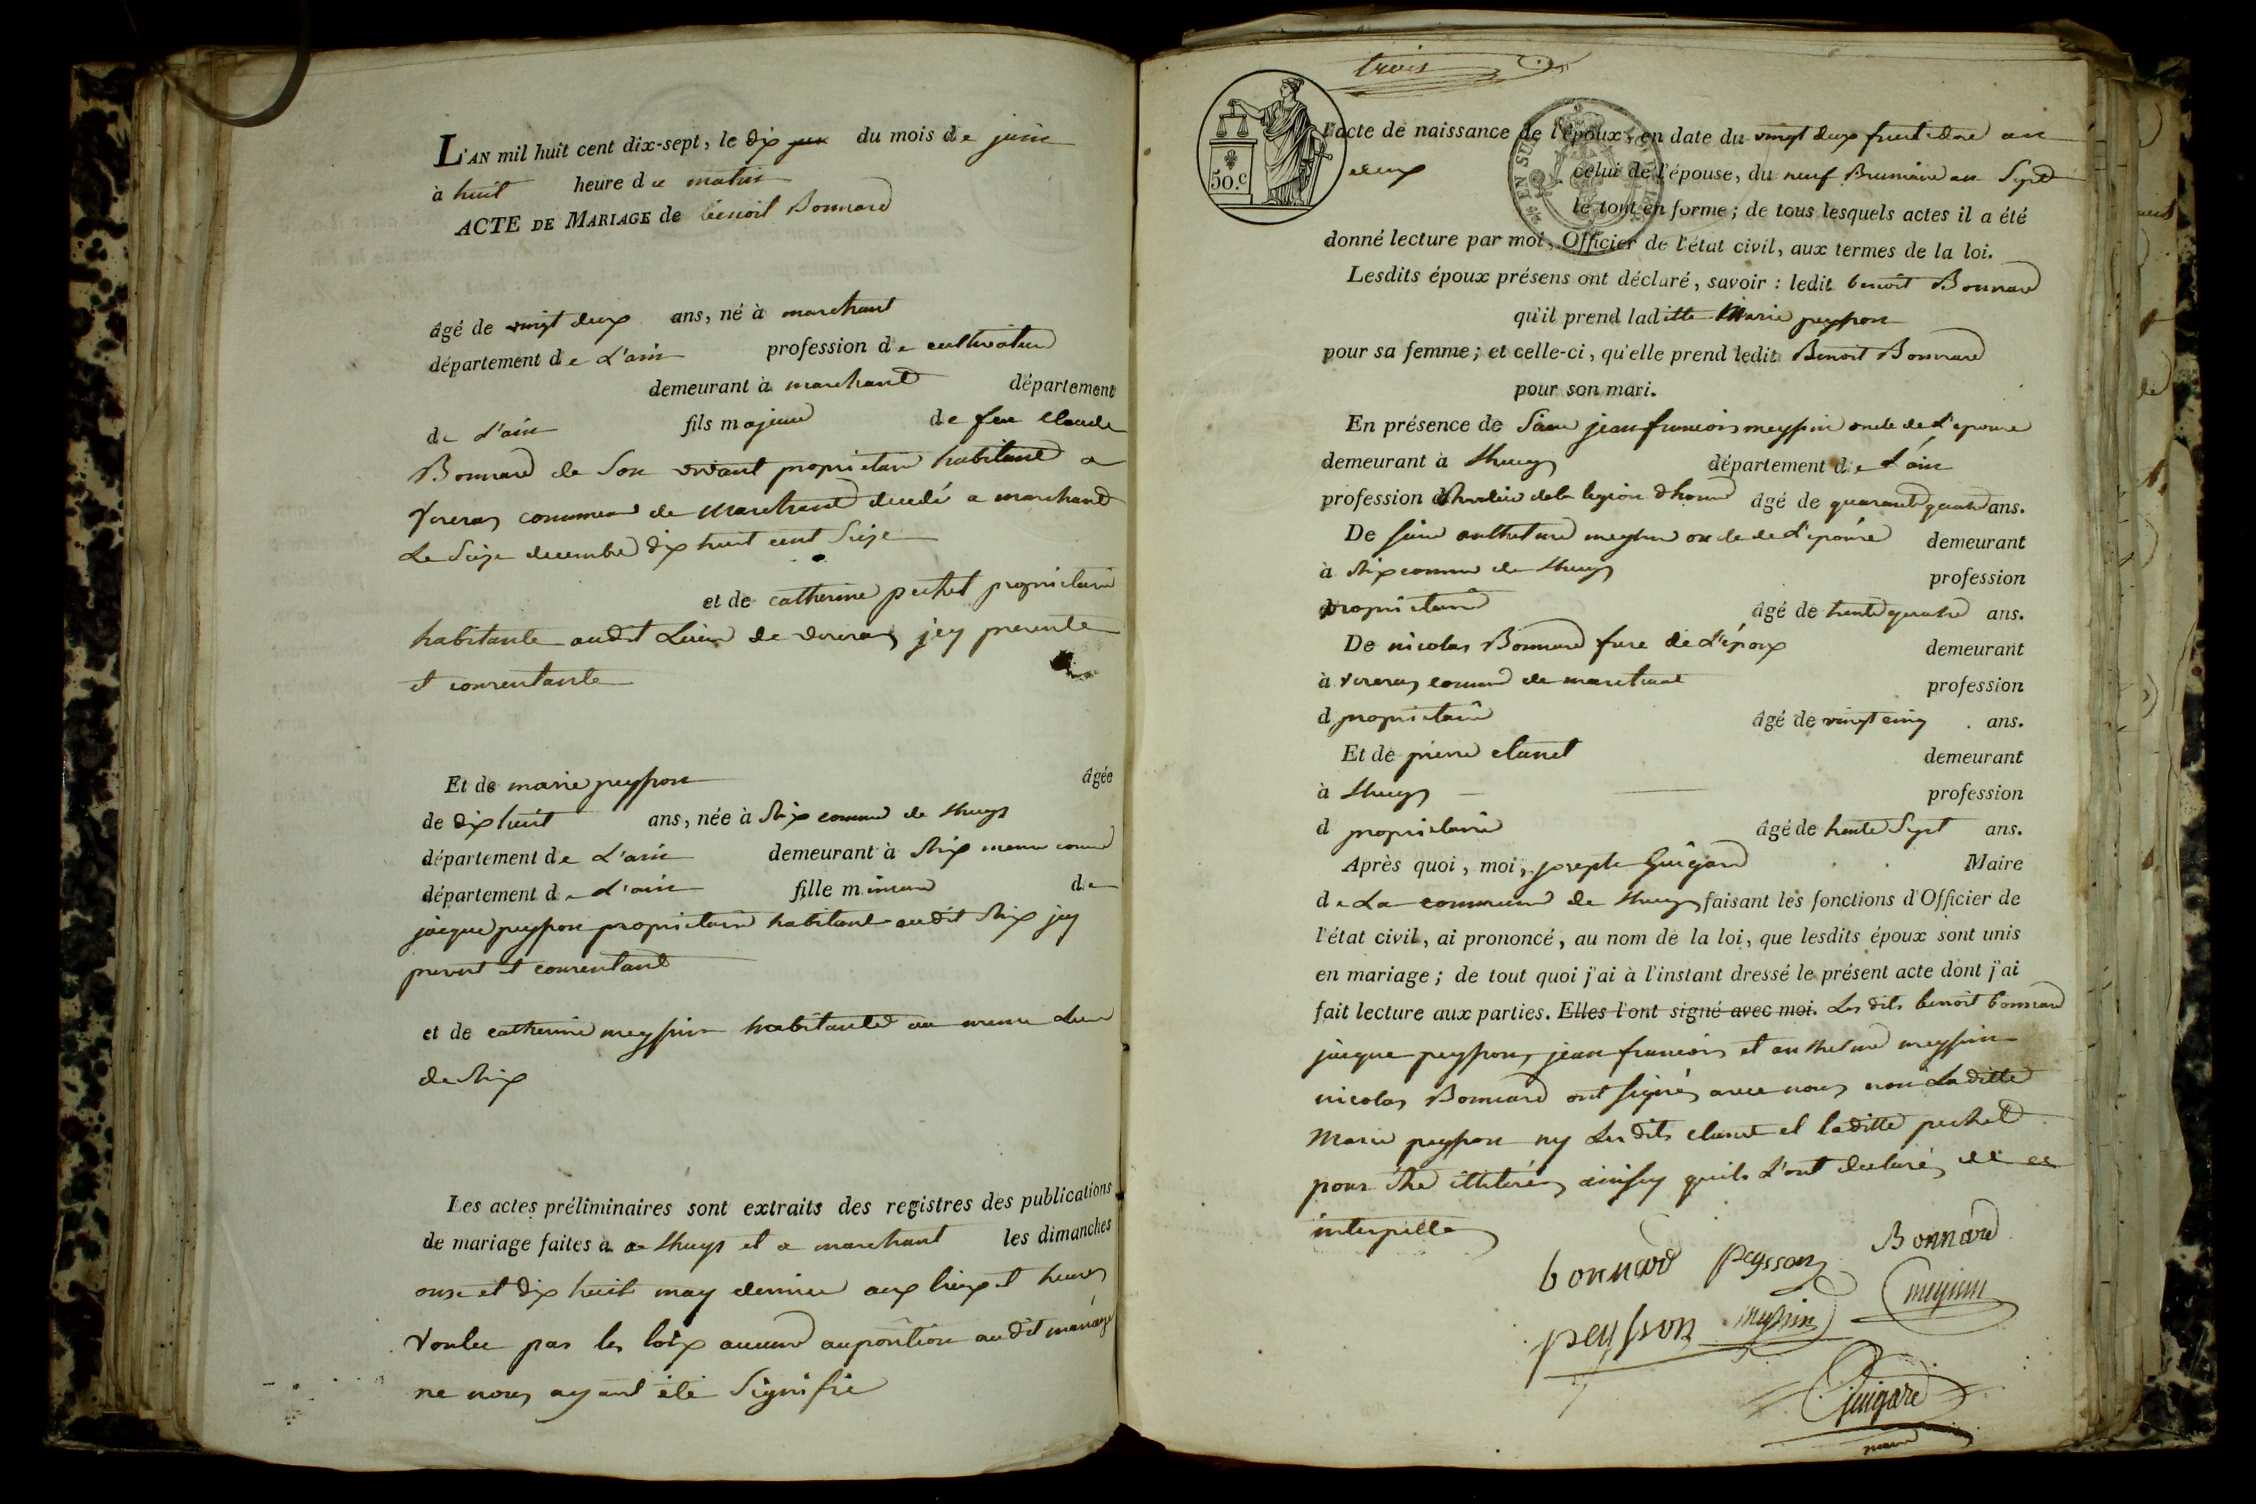 L'AN mil huit cent dix-sept, le dix du mois de juin
à huit heure du matin
ACTE DE MARIAGE de benoit Bonnard
âgé de vingt deux ans, né à marchant
département de L'ain profession de cultivateur
demeurant à marchant département
de L'ain fils majeur de feu Claude
Bonnard de Son vivant proprietaire habitant a
commune de Marchant decedé a marchant
Le Seize decembre dix huit cent Seize
et de catherine pechet proprietaire
habitante audit Lieu de jcy presente
et consentante
Et de marie peysson âgée
de dix huit ans, née à commune de
département de L'ain demeurant à meme commune
département de L'ain fille mineure de
jacque peysson proprietaire habitant audit jcy
present et consentant
et de catherine meyssin habitante au meme Lieu
de
Les actes préliminaires sont extraits des registres des publications
de mariage faites à a et a marchant les dimanches
onze et dix huit may dernier aux lieux et heures
Voulu par les loix aucune auposition audit mariage
ne nous ayant été Signifié
trois
50.c
L'acte de naissance de l'époux, en date du vingt deux fructidore an
deux celui de l'épouse, du neuf Brumaire an Sept
le tout en forme; de tous lesquels actes il a été
donné lecture par moi, Officier de l'état civil, aux termes de la loi.
Lesdits époux présens ont déclaré, savoir : ledit benoit Bonnard
qu'il prend laditte Marie peysson
pour sa femme; et celle-ci, qu'elle prend ledit Benoit Bonnard
pour son mari.
En présence de Sieur jean francois meyssin oncle de L'epouse
demeurant à département de L'ain
profession de la legion d'honneur âgé de quarante quatre ans.
De sieur anthelme meyssin oncle de L'epouse demeurant
à commune de profession
proprietaire âgé de trente quatre ans.
De nicolas Bonnard frere de L'époux demeurant
à commune de marchant profession
d proprietaire âgé de vingt cinq ans.
Et de pierre demeurant
à profession
d proprietaire âgé de trente Sept ans.
Après quoi, moi, joseph Guigard Maire
de La commune de faisant les fonctions d'Officier de
l'état civil, ai prononcé, au nom de la loi, que lesdits époux sont unis
en mariage; de tout quoi j'ai à l'instant dressé le présent acte dont j'ai
fait lecture aux parties. Elles l'ont signé avec moi. Les dits benoit bonnard
jacque peysson, jean francois et anthelme meyssin
nicolas Bonnard ont signés avec nous non Laditte
Marie peysson ny Les dits et laditte pechet
pour etre illiterés ainsy quils L'ont declarés de ce
interpellés
bonnard peysson Bonnard
peysson meyssin meyssin
Guigard
maire